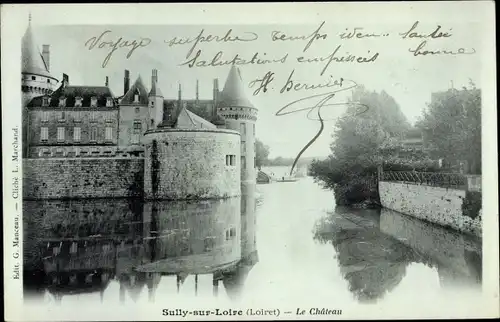 Voyage superbe temps idem. Santé
Salutations empressées bonne
H. Bernier
Edit. G. Manceau. — Cliché L. Marchand.
Sully-sur-Loire (Loiret) — Le Château